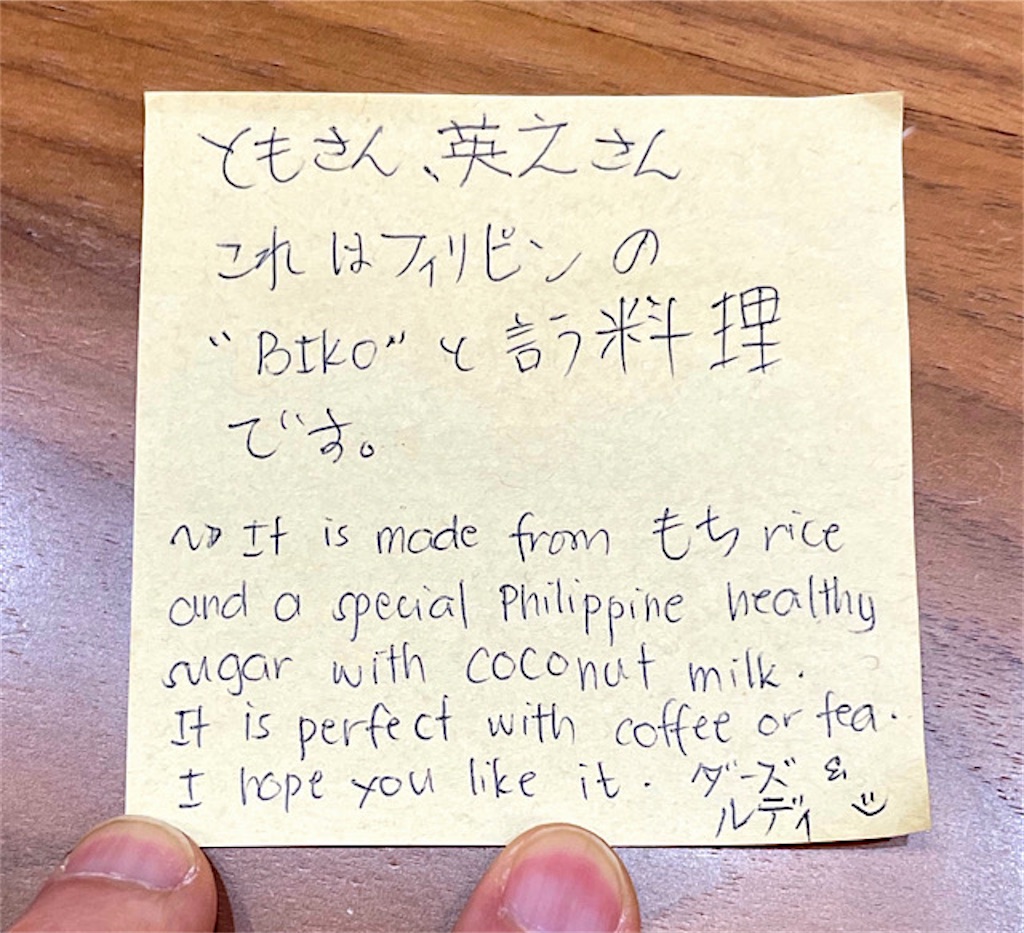 ともさん、英えさん
これはフィリピンの
“BIKO”と言う料理
です。
~» It is made from もち rice
and a special Philippine healthy
sugar with coconut milk.
It is perfect with coffee or tea.
I hope you like it. ダーズ &
ルディ